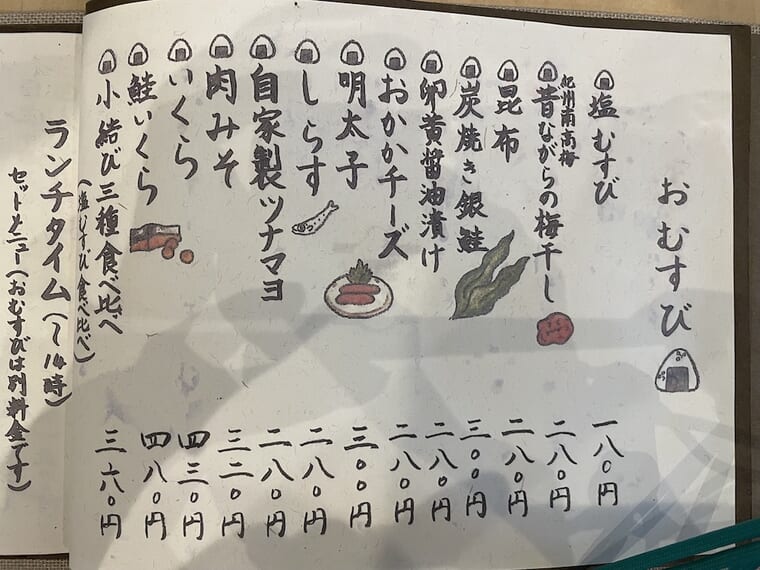 おむすび
塩むすび 一八〇円
紀州南高梅
昔ながらの梅干し 二八〇円
昆布 二八〇円
炭焼き銀鮭 三〇〇円
卵黄醤油漬け 二八〇円
おかかチーズ 二八〇円
明太子 三〇〇円
しらす 二八〇円
自家製ツナマヨ 二八〇円
肉みそ 三二〇円
いくら 四三〇円
鮭いくら 四八〇円
小結び三種食べ比べ 三六〇円
(塩むすび食べ比べ)
ランチタイム(〜14時)
セットメニュー(おむすびは別料金です)